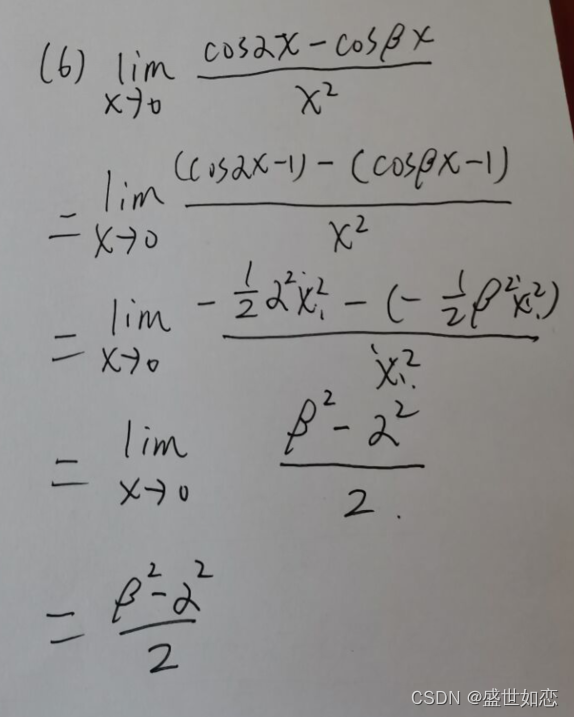 (6) lim x→0 (cosαx - cosβx) / x²
= lim x→0 ((cosαx-1) - (cosβx-1)) / x²
= lim x→0 (-1/2 α²x² - (-1/2 β²x²)) / x²
= lim x→0 (β² - α²) / 2
= (β² - α²) / 2
CSDN @盛世如恋